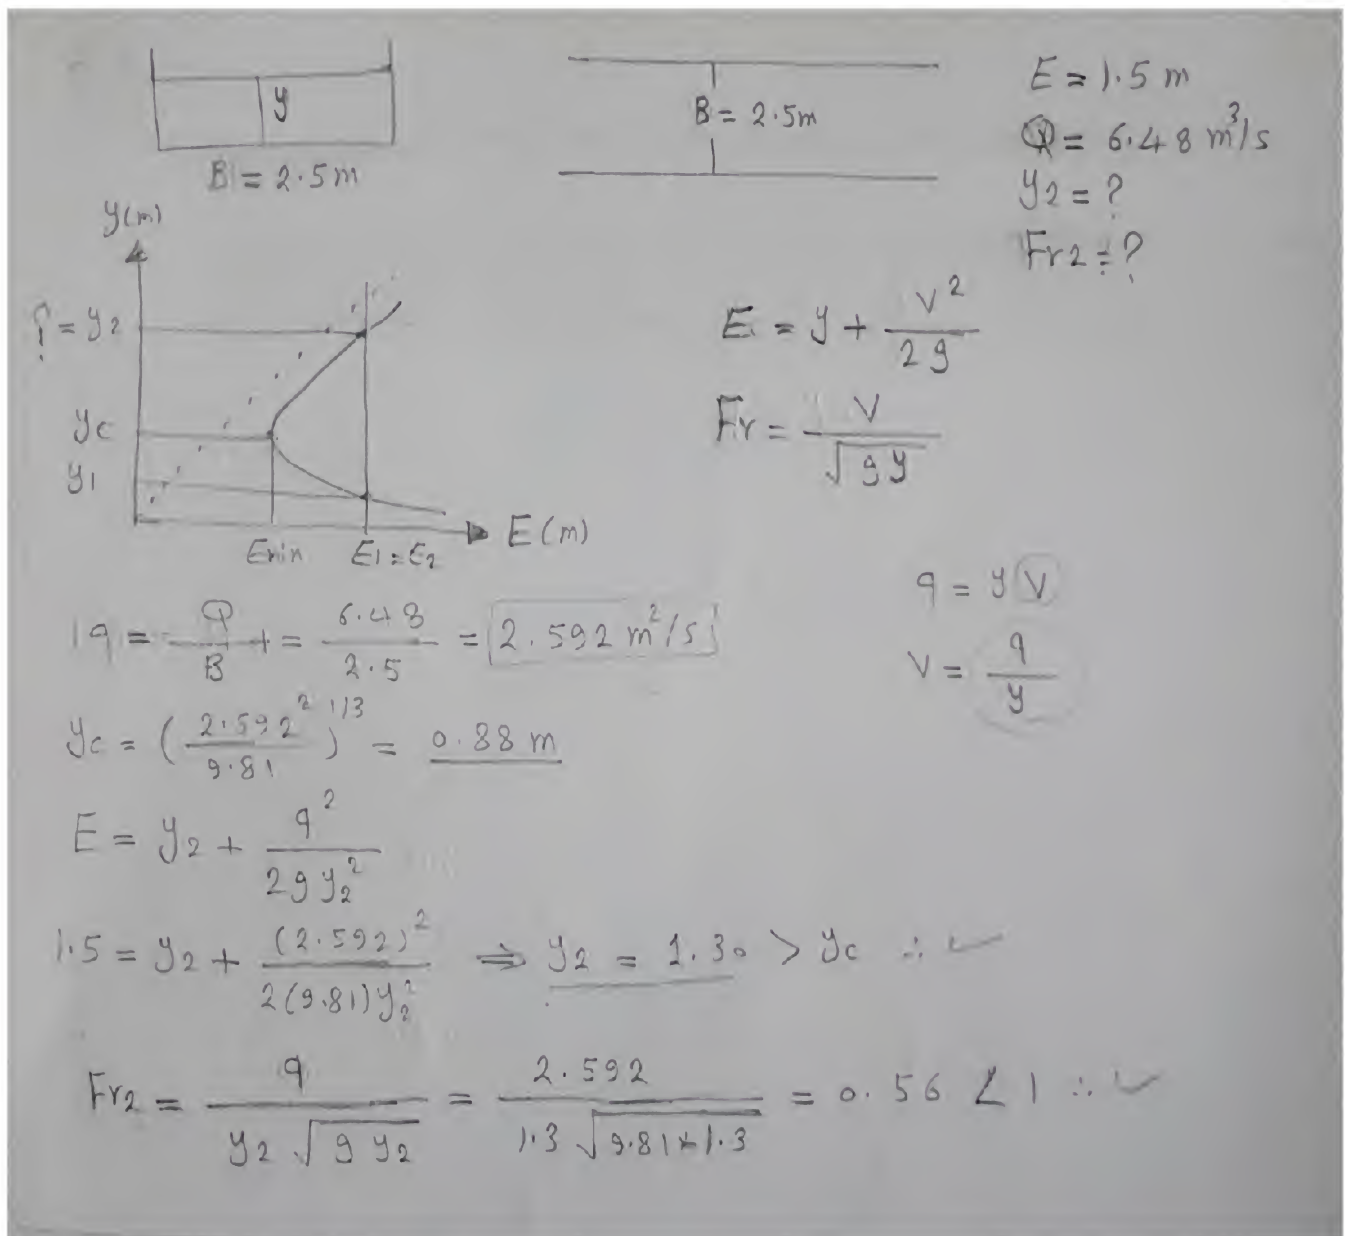 y
B = 2.5m
B = 2.5m
E = 1.5 m
Q = 6.48 m³/s
y2 = ?
Fr2 = ?
y(m)
? = y2
yc
y1
Emin E1 = E2
E (m)
E = y + V²/2g
Fr = V/√gy
q = Q/B = 6.48/2.5 = 2.592 m²/s
q = y V
V = q/y
yc = (2.592²/9.81)^1/3 = 0.88 m
E = y2 + q²/2gy2²
1.5 = y2 + (2.592)²/2(9.81)y2² ⇒ y2 = 1.30 > yc ∴ ✓
Fr2 = q/y2√gy2 = 2.592/1.3√9.81*1.3 = 0.56 < 1 ∴ ✓